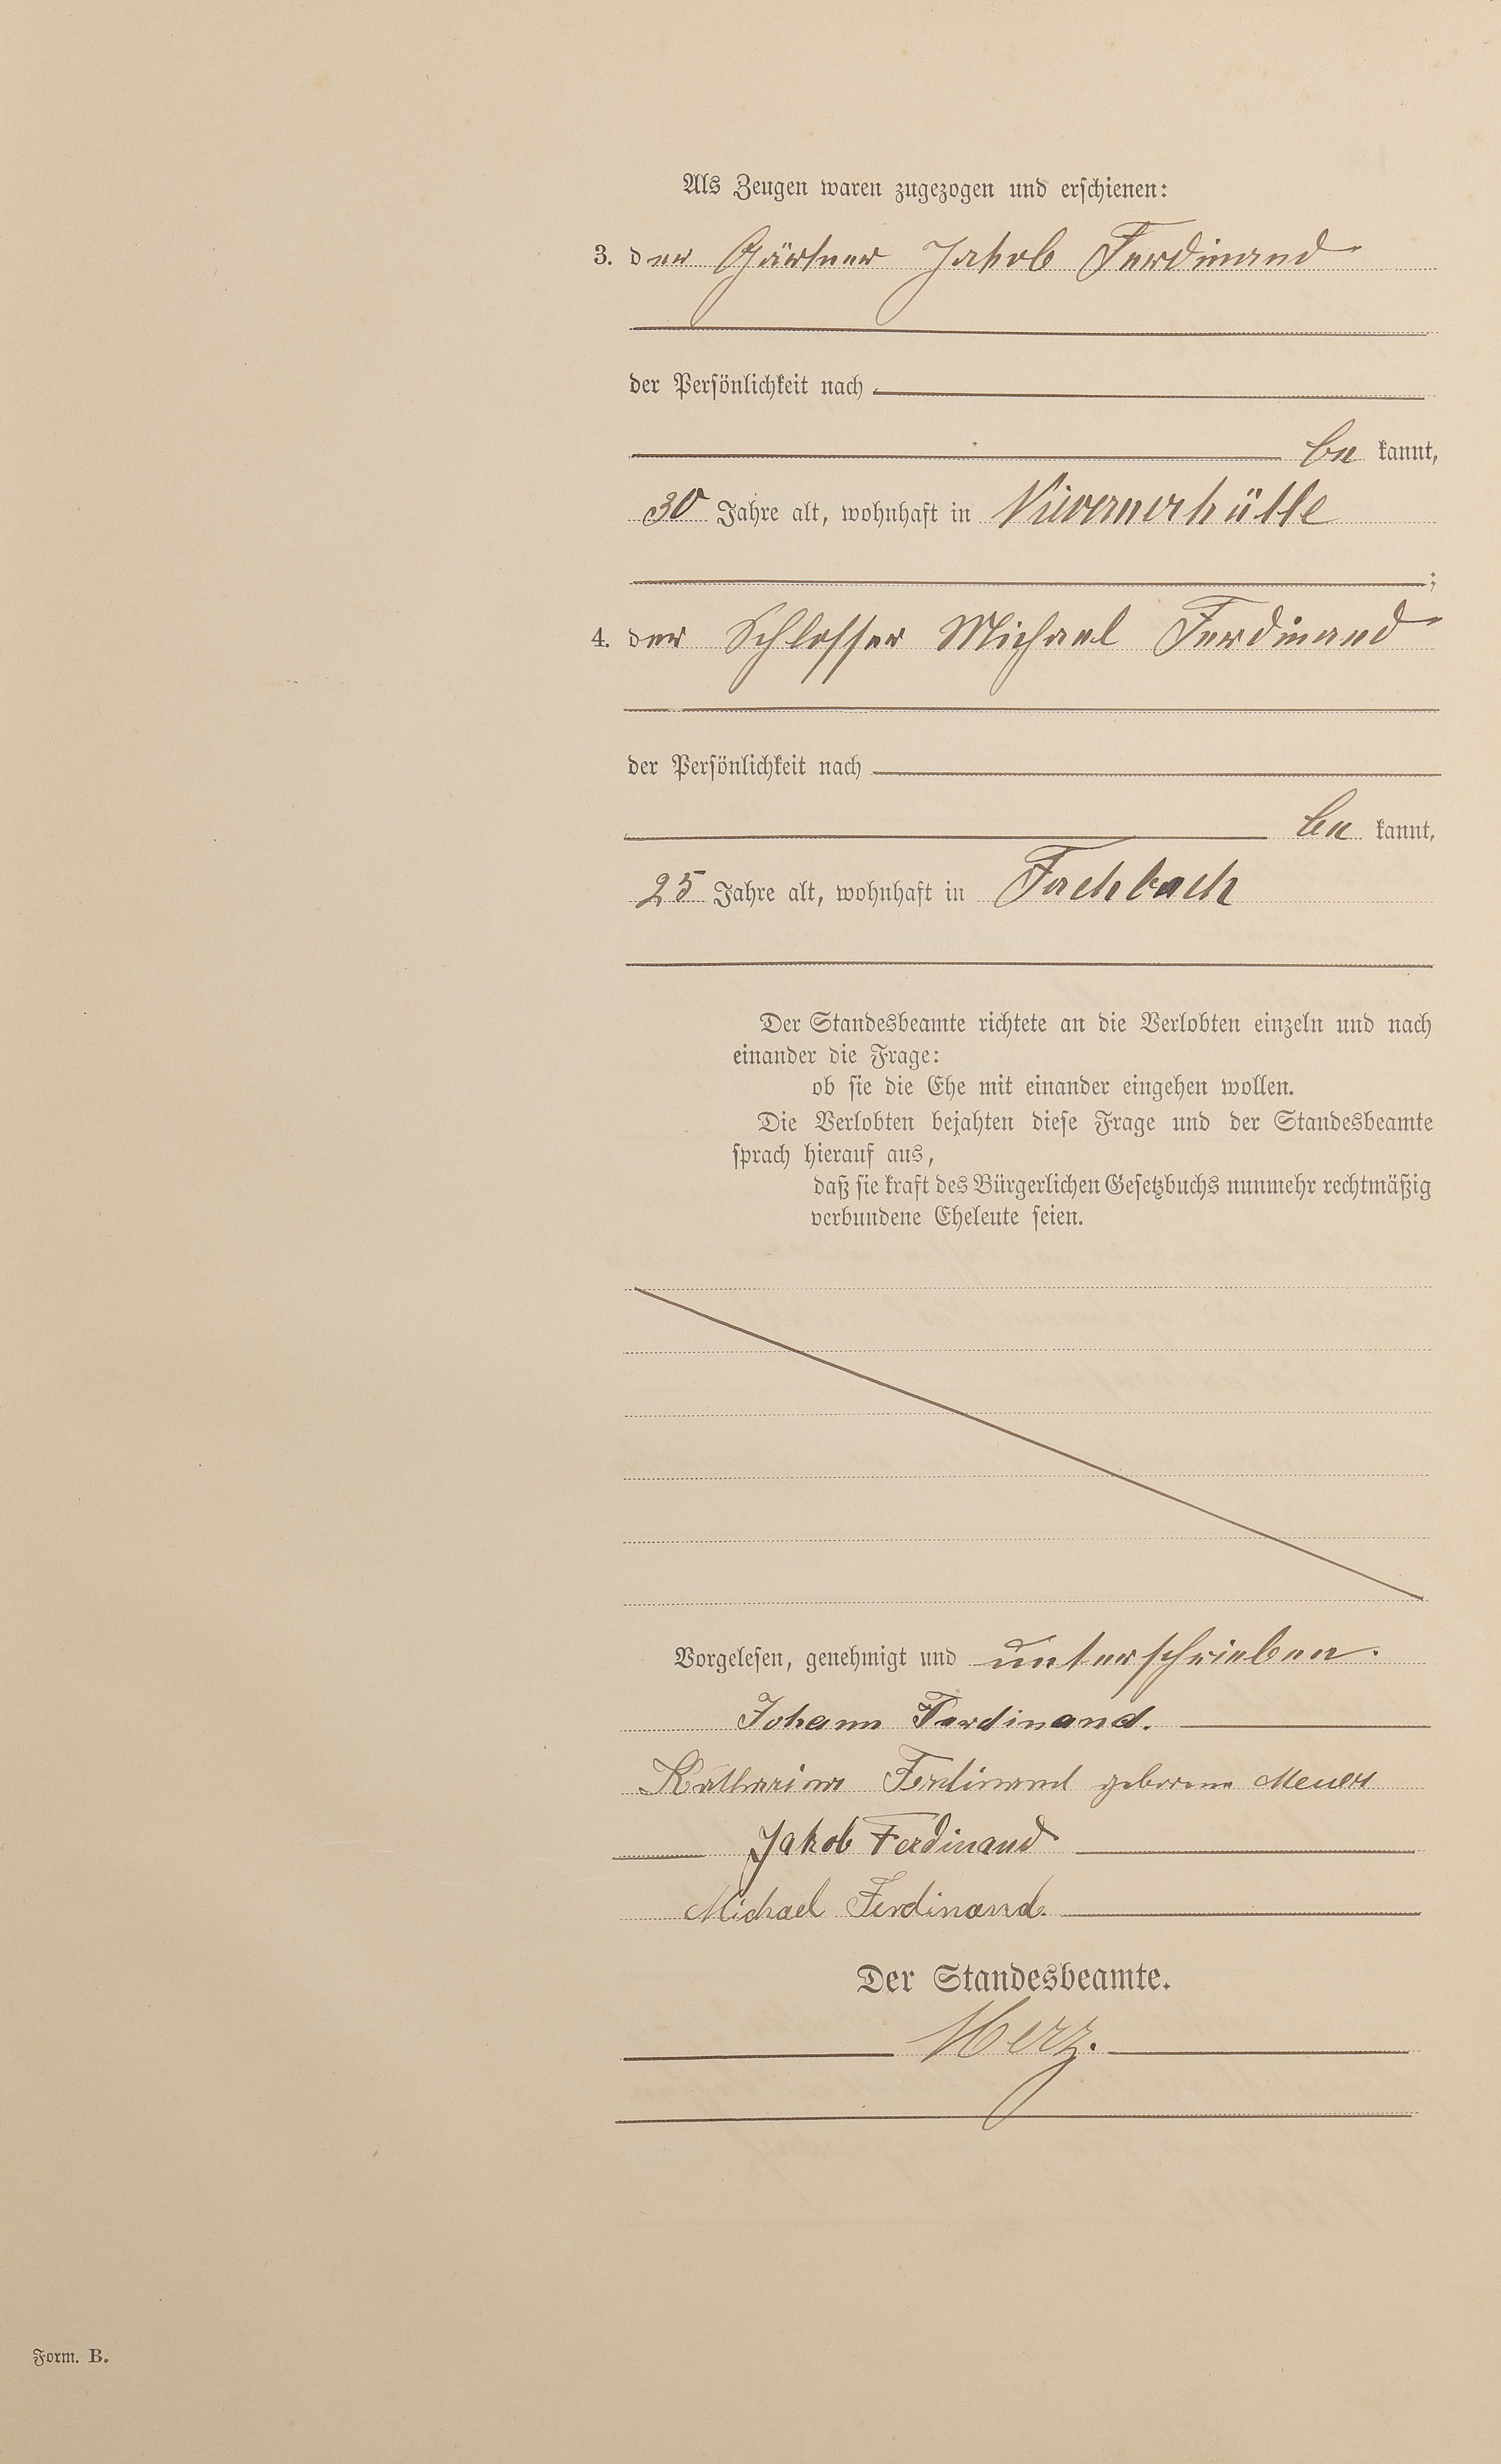 Als Zeugen waren zugezogen und erschienen:
3. der Gärtner Jakob Ferdinand
der Persönlichkeit nach
be kannt,
30 Jahre alt, wohnhaft in Nievernerhütte
;
4. der Schlosser Michael Ferdinand
der Persönlichkeit nach
be kannt,
25 Jahre alt, wohnhaft in Fachbach
Der Standesbeamte richtete an die Verlobten einzeln und nach
einander die Frage:
ob sie die Ehe mit einander eingehen wollen.
Die Verlobten bejahten diese Frage und der Standesbeamte
sprach hierauf aus,
daß sie kraft des Bürgerlichen Gesetzbuchs nunmehr rechtmäßig
verbundene Eheleute seien.
Vorgelesen, genehmigt und unterschrieben.
Johann Ferdinand.
Katharina Ferdinand geborene Meuer
Jakob Ferdinand
Michael Ferdinand.
Der Standesbeamte.
Herz.
Form. B.